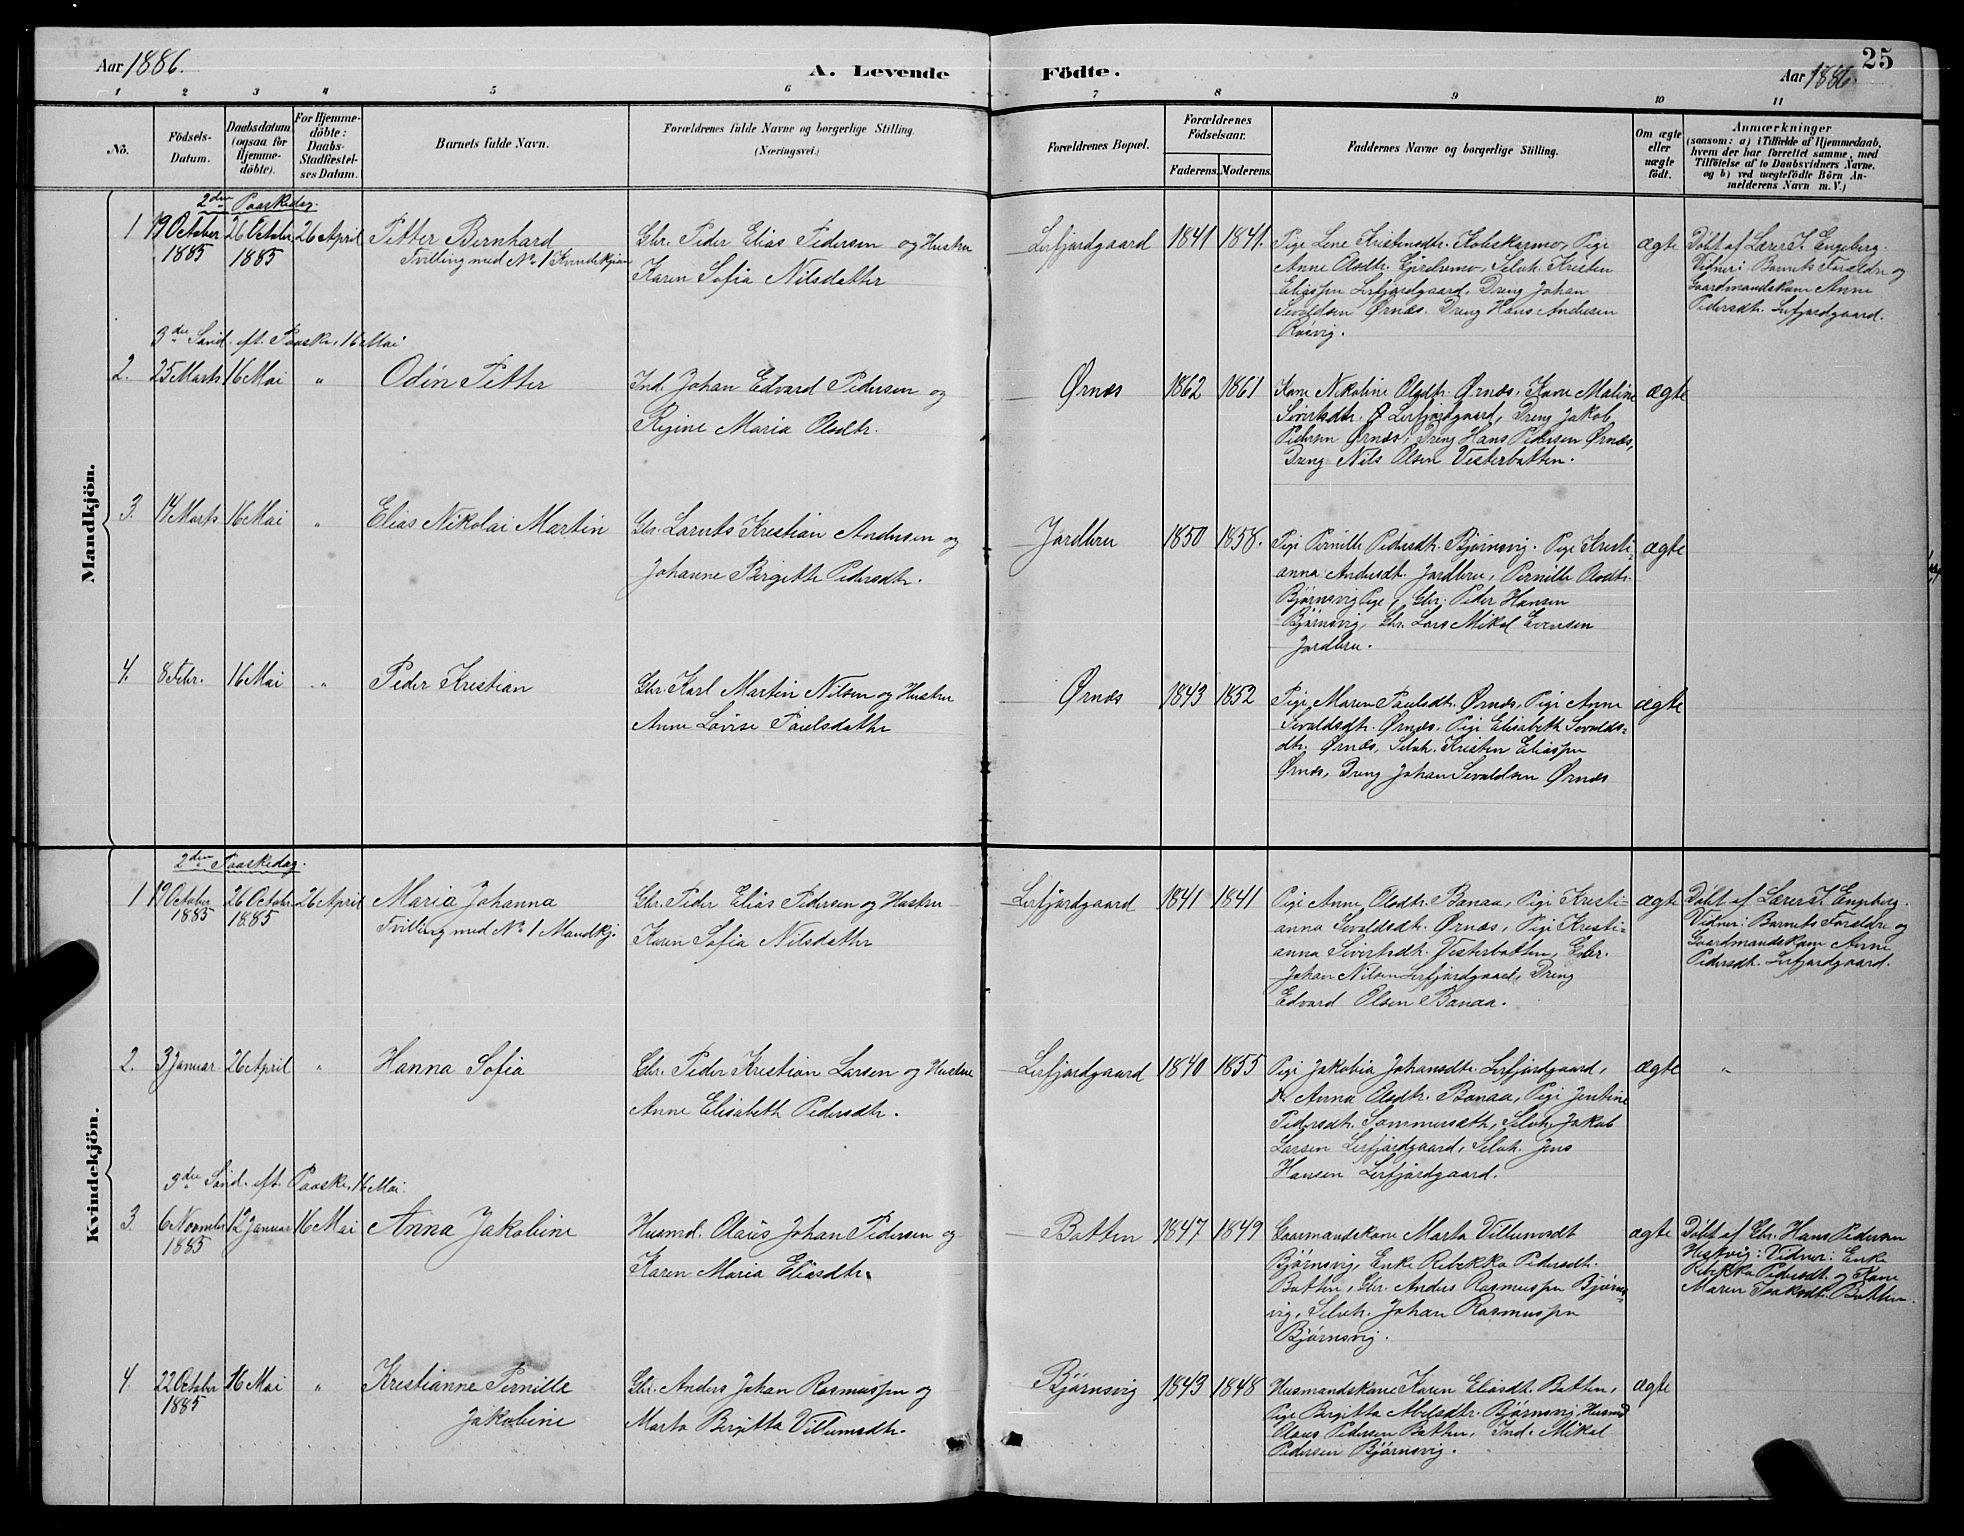 Aar 1886.
A. Levende Födte.
Aar 1886.
25
1 2 3 4 5 6 7 8 9 10 11
No.
Födsels-Datum.
Daabsdatum (ogsaa for Hjemme-döbte).
For Hjemme-döbte: Daabs-Stadfæstel-ses Datum.
Barnets fulde Navn.
Forældrenes fulde Navne og borgerlige Stilling.
(Næringsvei.)
Forældrenes Bopæl.
Forældrenes Födselsaar.
Faderens. Moderens.
Faddernes Navne og borgerlige Stilling.
Om ægte eller uægte födt.
Anmærkninger
(saasom: a) i Tilfælde af Hjemmedaab,
hvem der har forrettet samme, med
Tilföielse af to Daabsvidners Navne.
og b) ved uægtefödte Börn An-
melderens Navn m. V.)
Mandkjön.
2den Paaskedag.
1 19 October 1885 26 October 1885 26 April Petter Bernhard
Tvilling med No 1 Kvindekjøn
Gbr. Peder Elias Pedersen og Hustru
Karen Sofia Nilsdatter
Leifjordgaard 1841 1841.
Pige Lene Kristensdtr. Pige
Anne Olsdtr. Selvh. Kristen
Eliassen Leirfjordgaard, Dreng Johan
Sevaldsen Ørnæs. Dreng Hans Andersen
Røsvig.
ægte
Døbt af Lærer J. Engeberg.
Vidner: Barnets Forældre og
Gaardmandskone Anne
Pedersdtr. Leifjordgaard.
3die Sönd. eft. Paaske, 16 Mai
2. 25 Marts 16 Mai " Odin Petter
Ind. Johan Edvard Pedersen og
Regine Maria Olsdtr.
Ørnæs 1862 1861
Kone Nikoline Olsdtr. Ørnæs, Kone Maline
Sivertsdtr. Leifjordgaard, Dreng Jakob
Pedersen Ørnæs, Dreng Hans Pedersen Ørnæs,
Dreng Nils Olsen Vesterbotten.
ægte
3. 14 Marts 16 Mai " Elias Nikolai Martin
Gbr. Laruts Kristian Andersen og
Johanne Birgitte Pedersdtr.
Jordbru 1850 1858.
Pige Pernille Pedersdtr. Bjørnsvig. Pige Kristi-
anna Andersdtr. Jordbru, Pernille Olsdtr.
Bjørnsvig Pige, Gbr. Peder Hansen
Bjørnsvig, Gbr. Lars Mikal Evensen
Jordbru.
ægte
4. 8 Febr. 16 Mai " Peder Kristian
Gbr. Karl Martin Nilsen og Hustru
Anne Lovise Paulsdatter
Ørnæs 1843 1852
Pige Maren Paulsdtr. Ørnæs, Pige Anne
Sevaldsdtr. Ørnæs, Pige Elisabeth Sevalds-
dtr. Ørnæs, Selvh. Kristen Eliassen
Ørnæs, Dreng Johan Sevaldsen Ørnæs
ægte
Kvindekjön.
2den Paaskedag.
1 19 October 1885 26 October 1885 26 April Maria Johanna
Tvilling med No 1 Mandkj.
Gbr. Peder Elias Pedersen og Hustru
Karen Sofia Nilsdatter
Leifjordgaard 1841 1841
Pige Anne Olsdtr. Bonaa, Pige Kristi-
anna Sevaldsdtr. Ørnæs, Pige Kristi-
anna Sivertsdtr. Vesterbotten, Gbr.
Johan Nilsen Leifjordgaard, Dreng
Edvard Olsen Bonaa.
ægte
Døbt af Lærer J. Engeberg.
Vidner: Barnets Forældre og
Gaardmandskone Anne
Pedersdtr. Leifjordgaard.
2. 3 Januar 26 April " Hanna Sofia
Gbr. Peder Kristian Larsen og Hustru
Anne Elisabeth Pedersdtr.
Leifjordgaard 1840 1855
Pige Jakobia Johansdtr. Leifjordgaard,
Anna Olsdtr. Bonaa, Pige Jentine
Pedersdtr. Sommersæth, Selvh. Jakob
Larsen Leifjordgaard, Selvh. Jens
Hansen Leifjordgaard.
ægte "
3die Sönd. eft. Paaske, 16 Mai.
3. 6 November 1885 12 Januar 16 Mai Anna Jakobine
Husmd. Olaüs Johan Pedersen og
Karen Maria Eliasdtr.
Botten 1847 1849
Gaarmandskone Marta Villumsdt
Bjørnsvig, Enke Rebekka Pedersdtr.
Botten, Gbr. Anders Rasmussen Bjørns-
vig, Selvh. Johan Rasmussen
Bjørnsvig.
ægte
Døbt af Gbr. Hans Pedersen
Hestvig: Vidner: Enke
Rebekka Pedersdt. og Kone
Maren Isaksdt. Botten.
4. 22 October 1885 16 Mai " Kristianne Pernille
Jakobine
Gbr. Anders Johan Rasmussen og
Marta Birgitta Villumsdtr.
Bjørnsvig 1843 1848
Husmandskone Karen Eliasdt. Botten,
Pige Birgitta Abelsdtr. Bjørnsvig, Husmd
Olaus Pedersen Botten, Ind. Mikal
Pedersen Bjørnsvig.
ægte